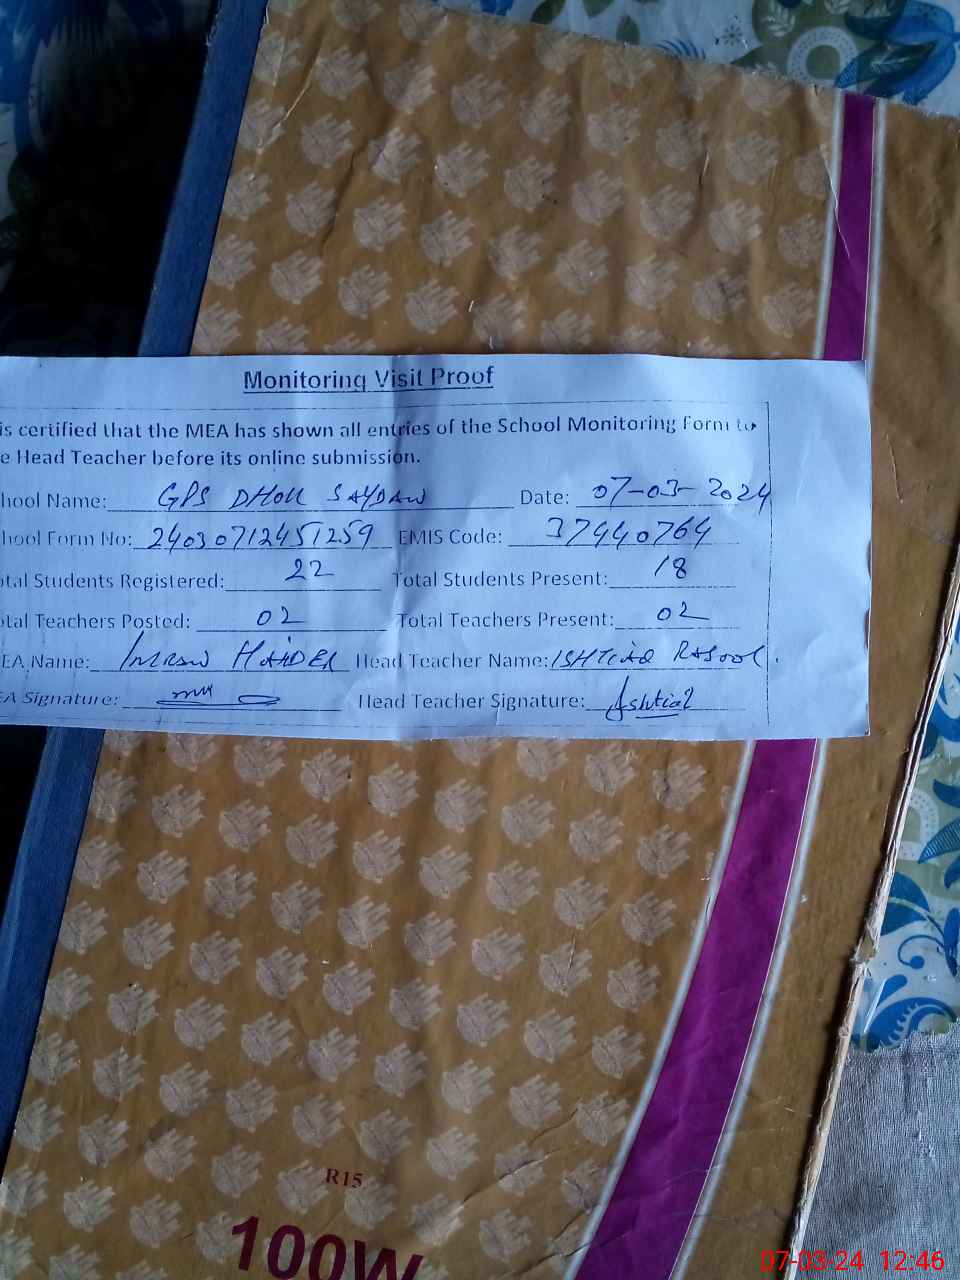 Monitoring Visit Proof
is certified that the MEA has shown all entries of the School Monitoring Form to
e Head Teacher before its online submission.
hool Name: GPS DHOK SAYDAN Date: 07-03-2024
hool Form No: 24030712451259 EMIS Code: 37440764
tal Students Registered: 22 Total Students Present: 18
tal Teachers Posted: 02 Total Teachers Present: 02
EA Name: IMRAN HAIDER Head Teacher Name: ISHTIAQ RASOOL.
EA Signature: Head Teacher Signature: Ishtiaq
R15
100W
07-03-24 12:46